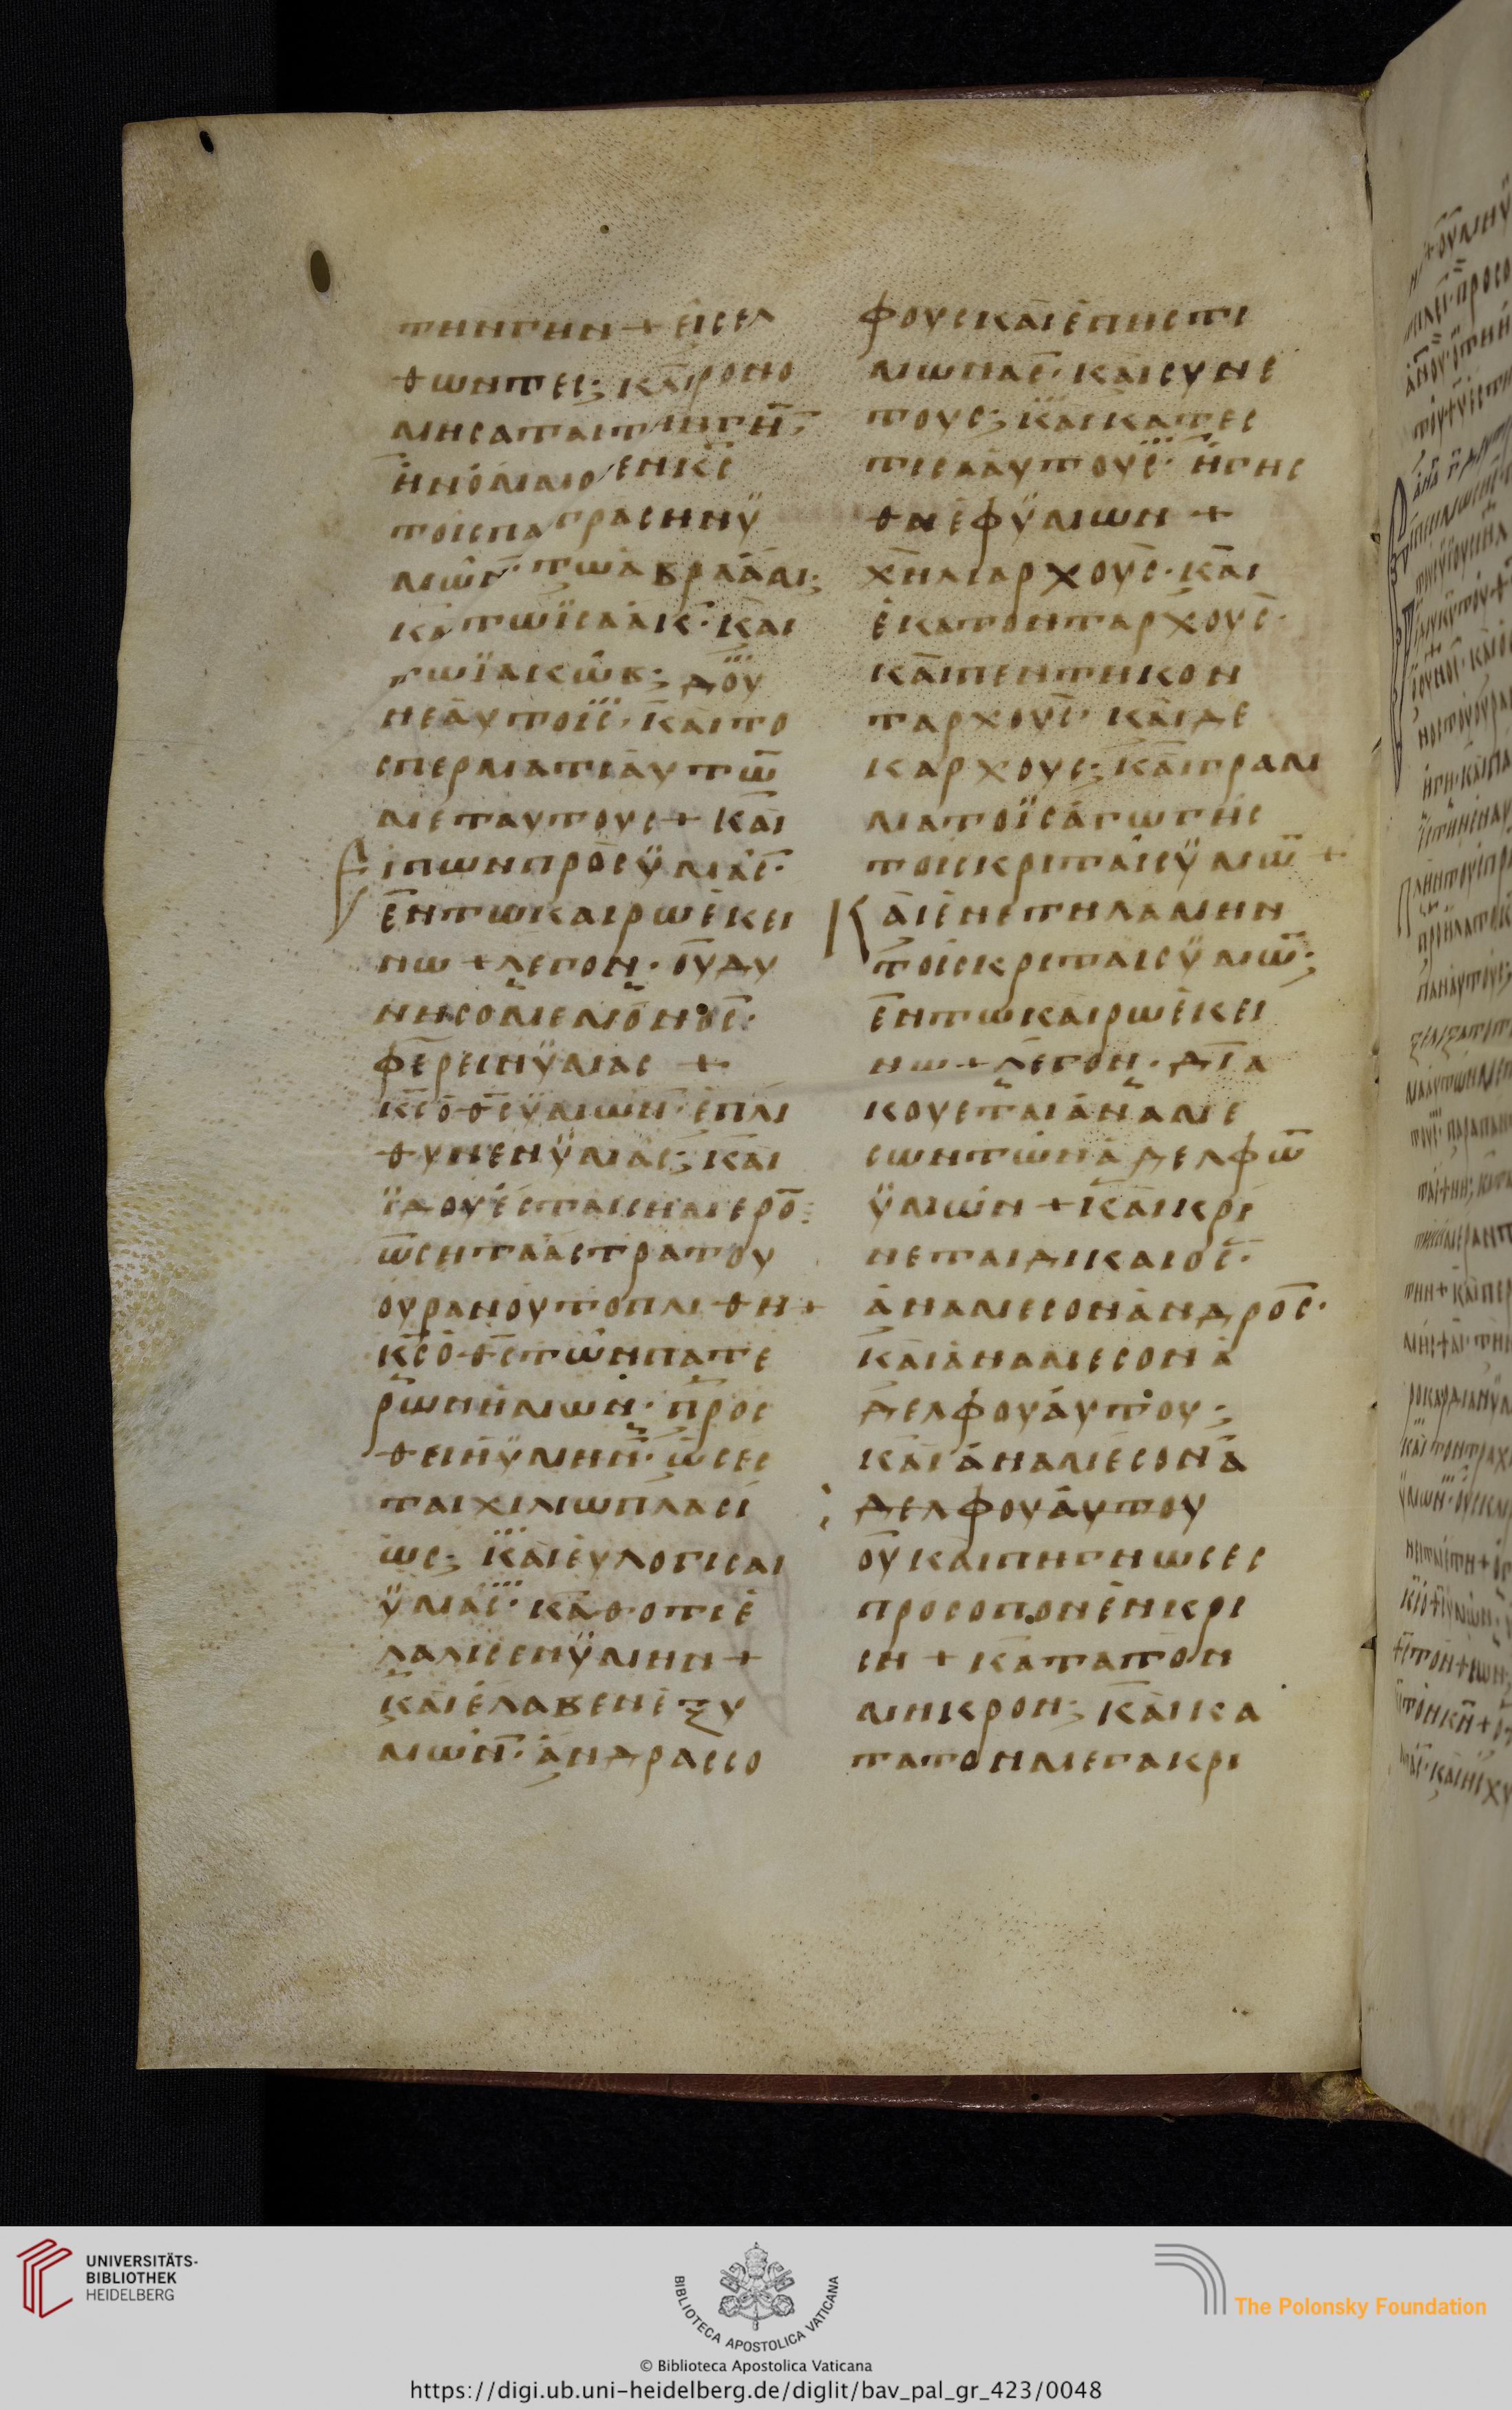 τηνγην + εισελ
θωντες; κλιρονο
μησαταιτηνγην·
ηνομοσενκς
τοισπατρασηνυ
μων· τωαβρααμ;
και τωισαακ· και
τωιακωβ; δου
νεαυτοις· καιτο
σπερματιαυτω̅
μεταυτους + και
Ειπωνπροσυμας·
εντωκαιρωεκει
νω + λεγον· ουδυ
νησομεμονος·
φερεινυμας +
κςοθςυμων· επλι
θυνενυμας; και
ϊδουεσταισημερο̅;
ωσηταάστρατου
ουρανουτοπλιθη +
κςοθςτωνπατε
ρωνημων· προσ
θεινυμην· ωσεσ
ταιχιλιωπλασι
ως; καιευλογισαι
υμας· καθοτιε
λαλισενυμην +
καιελαβενεξυ
μων· ανδρασσο
φουσκαιεπηστι
μωνας· καισυνε
τους; καικατεσ
τισααυτους· ηγησ
θνεφυμων +
χηλιαρχους· και
εκατονταρχους·
καιπεντηκον
ταρχους· καιδε
καρχους; καιγραμ
ματοϊσαγωγης
τοισκριταισυμω̅ +
Καιενετηλαμην
τοισκριταισυμω̅;
εντωκαιρωεκει
νω + λεγον· δια
κουεταιαναμε
σωντωναδελφω̅
υμων + καικρι
νεταιδικαιος·
αναμεσονανδρος·
καιαναμεσονα
δελφουαυτου;
καιαναμεσονα
δελφουαυτου
ουκαιπηγνωσες
προσοπονενκρι
ση + κατατον
μηκρον; καικα
τατονμεγακρι
UNIVERSITÄTS-
BIBLIOTHEK
HEIDELBERG
BIBLIOTECA APOSTOLICA VATICANA
© Biblioteca Apostolica Vaticana
The Polonsky Foundation
https://digi.ub.uni-heidelberg.de/diglit/bav_pal_gr_423/0048